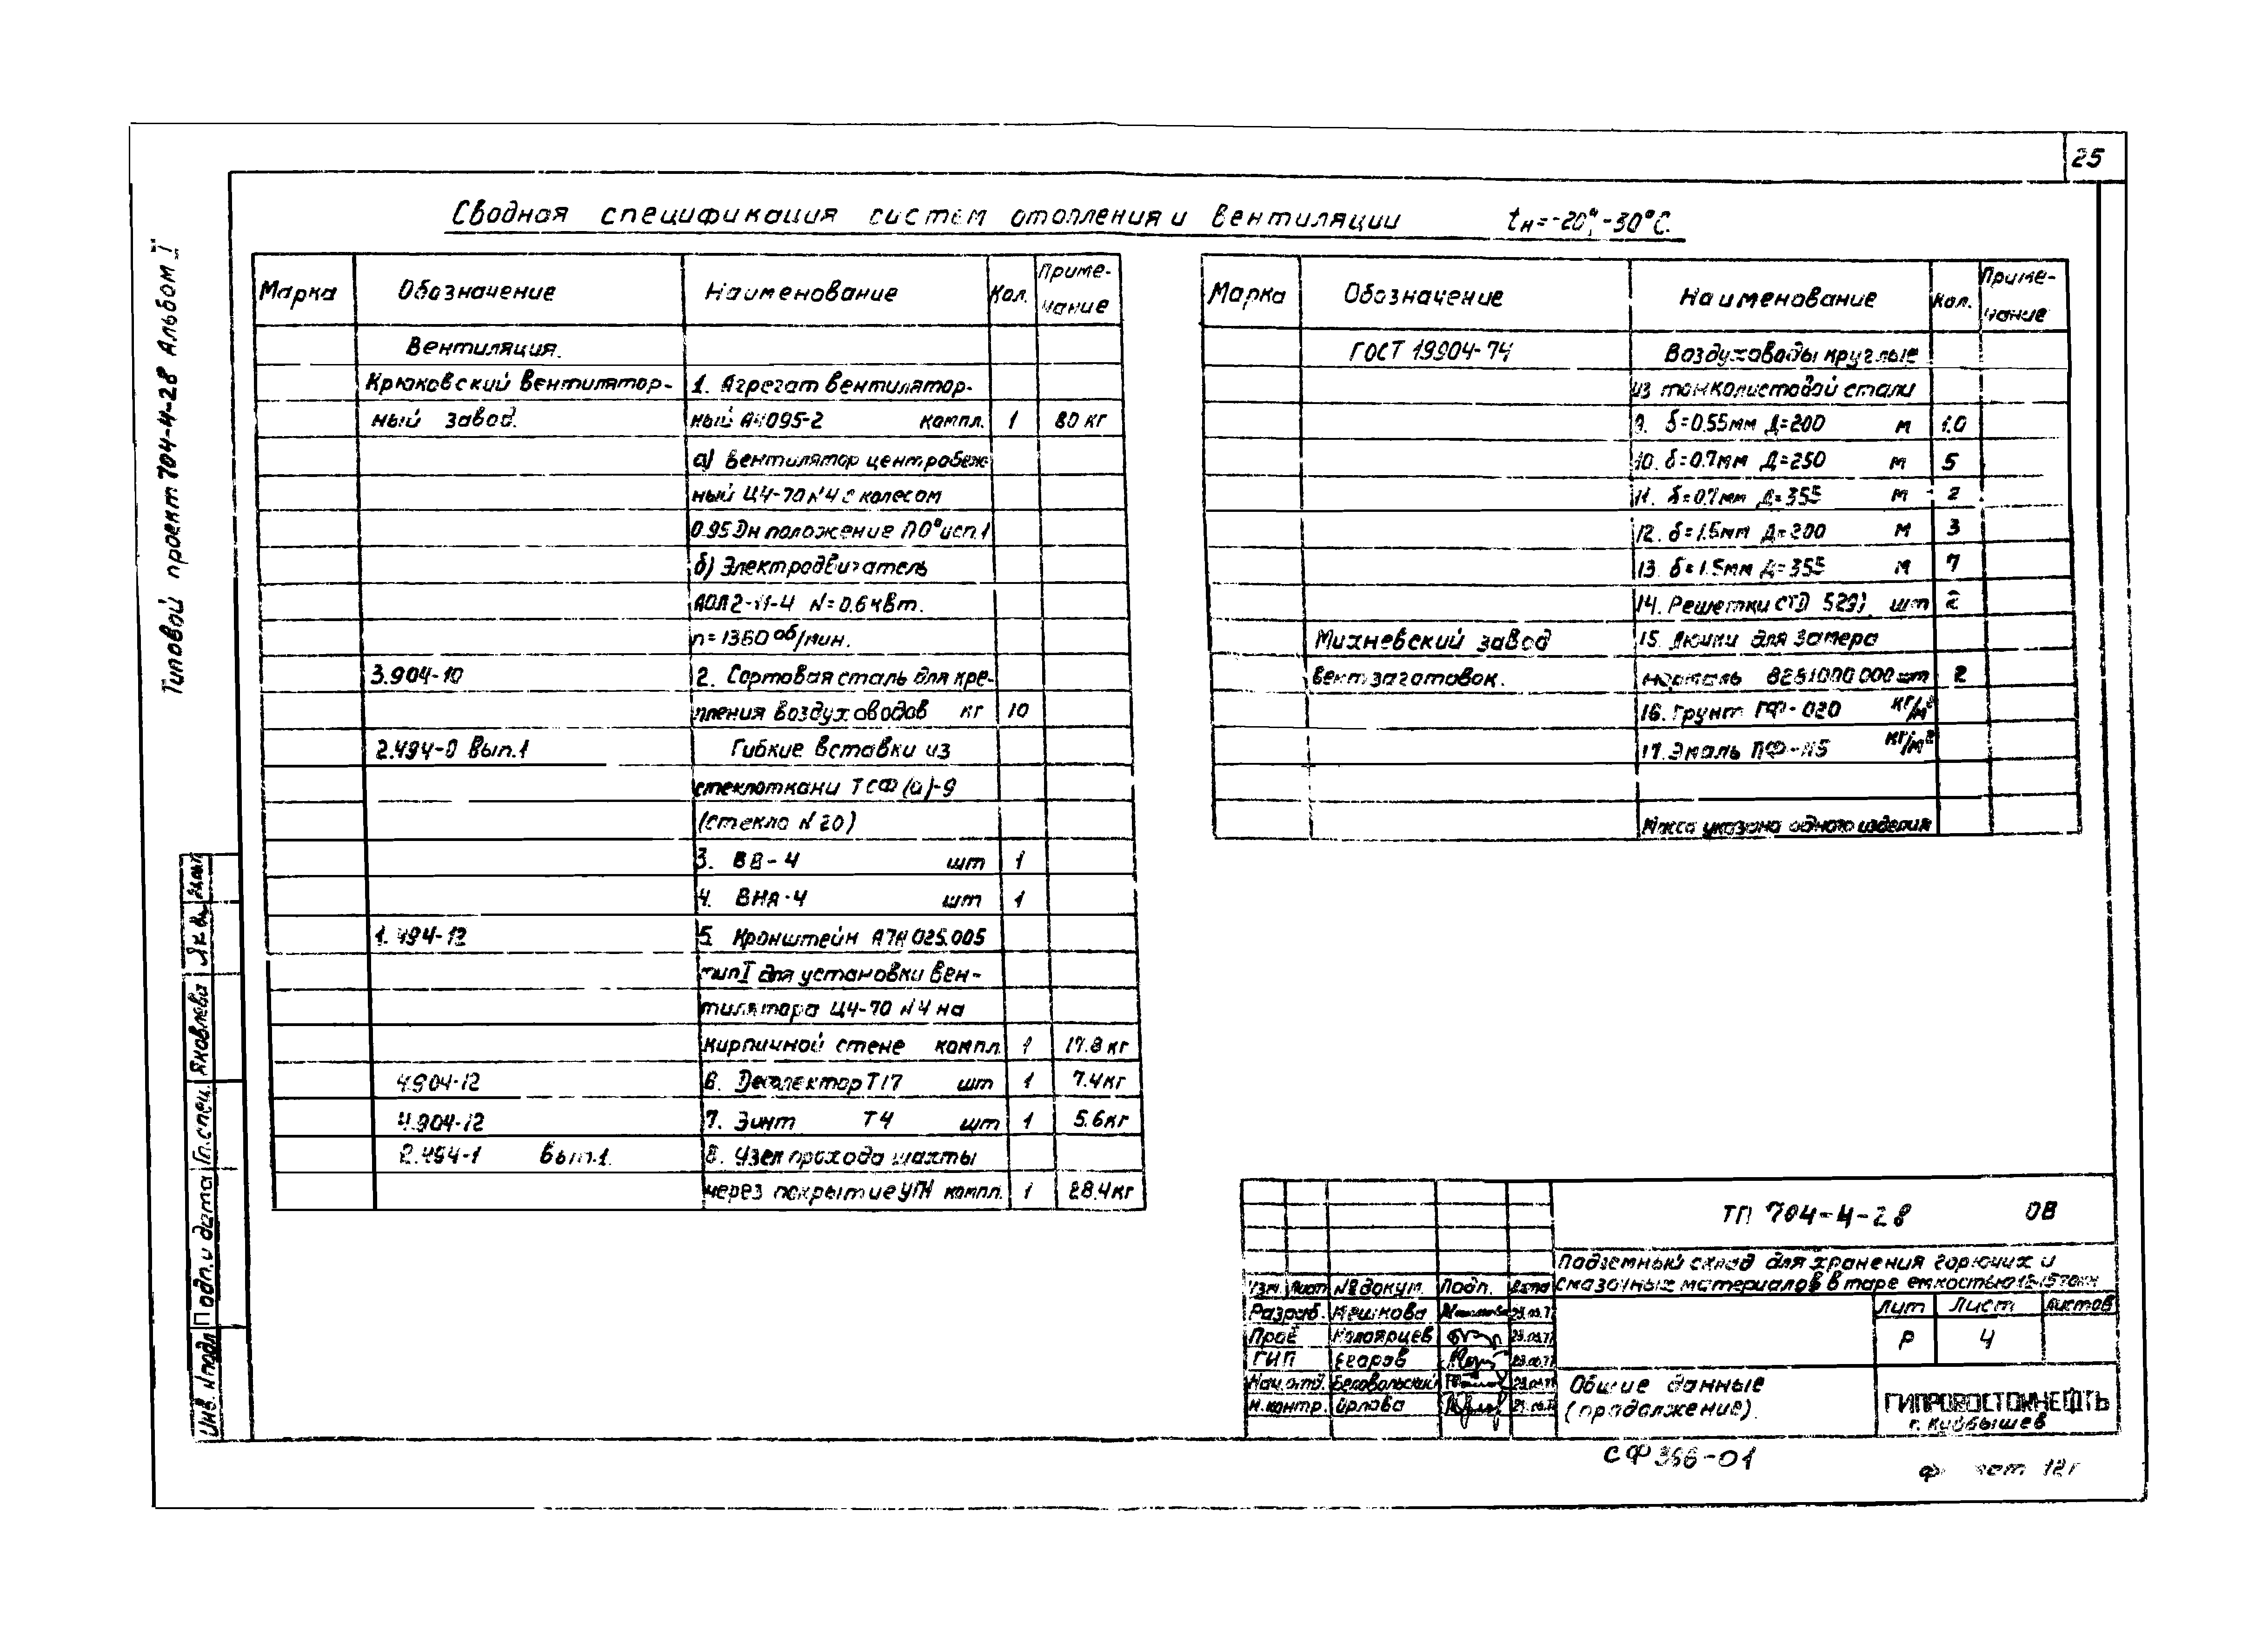 25
Типовой проект 704-4-28 Альбом I
Сводная спецификация систем отопления и вентиляции tн=-20°,-30°С.
Марка Обозначение Наименование Кол. Приме-
чание
Вентиляция.
Крюковский вентилятор- 1. Агрегат вентилятор-
ный завод. ный А4095-2 компл. 1 80 кг
а) Вентилятор центробеж
ный Ц4-70 N4 с колесом
0.95 Дн положение П0° исп.1
б) Электродвигатель
АОЛ2-11-4 N=0.6 квт.
n=1360 об/мин.
3.904-10 2. Сортовая сталь для кре-
пления воздуховодов кг 10
2.494-8 Вып.1 Гибкие вставки из
стеклоткани ТСФ(а)-9
(стекло N20)
3. ВВ-4 шт 1
4. ВНА-4 шт 1
1.494-12 5. Кронштейн А7А025.005
тип I для установки вен-
тилятора Ц4-70 N4 на
кирпичной стене компл 1 17.8 кг
4.904-12 6. Дефлектор Т17 шт 1 7.4 кг
4.904-12 7. Зонт Т4 шт 1 5.6 кг
2.494-1 Вып.1. 8. Узел прохода шахты
через покрытие УП1 компл. 1 28.4 кг
Марка Обозначение Наименование Кол. Приме-
чание
ГОСТ 19904-74 Воздуховоды круглые
из тонколистовой стали
9. δ=0.55мм Д=200 м 1.0
10. δ=0.7мм Д=250 м 5
11. δ=0.7мм Д=355 м 2
12. δ=1.5мм Д=200 м 3
13. δ=1.5мм Д=355 м 7
14. Решетки СТД 5291 шт 2
Михневский завод 15. Лючки для замера
вентзаготовок. нормаль шт 2
16. Грунт ГФ-020 кг/м²
17. Эмаль ПФ-115 кг/м²
Масса указана одного изделия
ТП 704-4-28 ОВ
Подземный склад для хранения горючих и
смазочных материалов в таре емкостью 12-15 тонн
Изм. Лист №докум. Подп. Дата
Лит Лист Листов
Р 4
Разраб. Мешкова
Пров
ГИП Егоров
Нач.отд. Беловольский
Н.контр. Орлова
Общие данные
(продолжение).
ГИПРОВОСТОКНЕФТЬ
г. Куйбышев
СФ 366-01
12г
Гл.спец. Яковлева
Подп. и дата
Инв. N подл